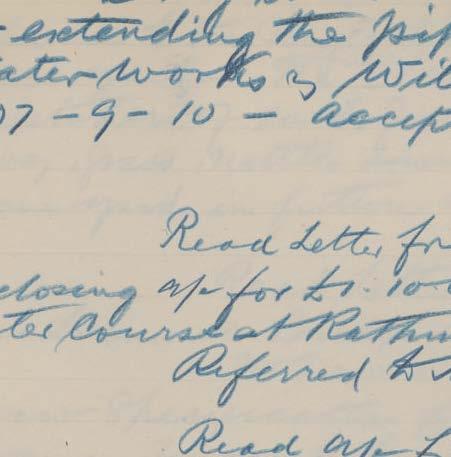 extending the pip
ater works by Wil
07-9-10 - accep
Read Letter fr
closing a/c for £1-10-
ter Course at Rathm
Referred to
Read a/c